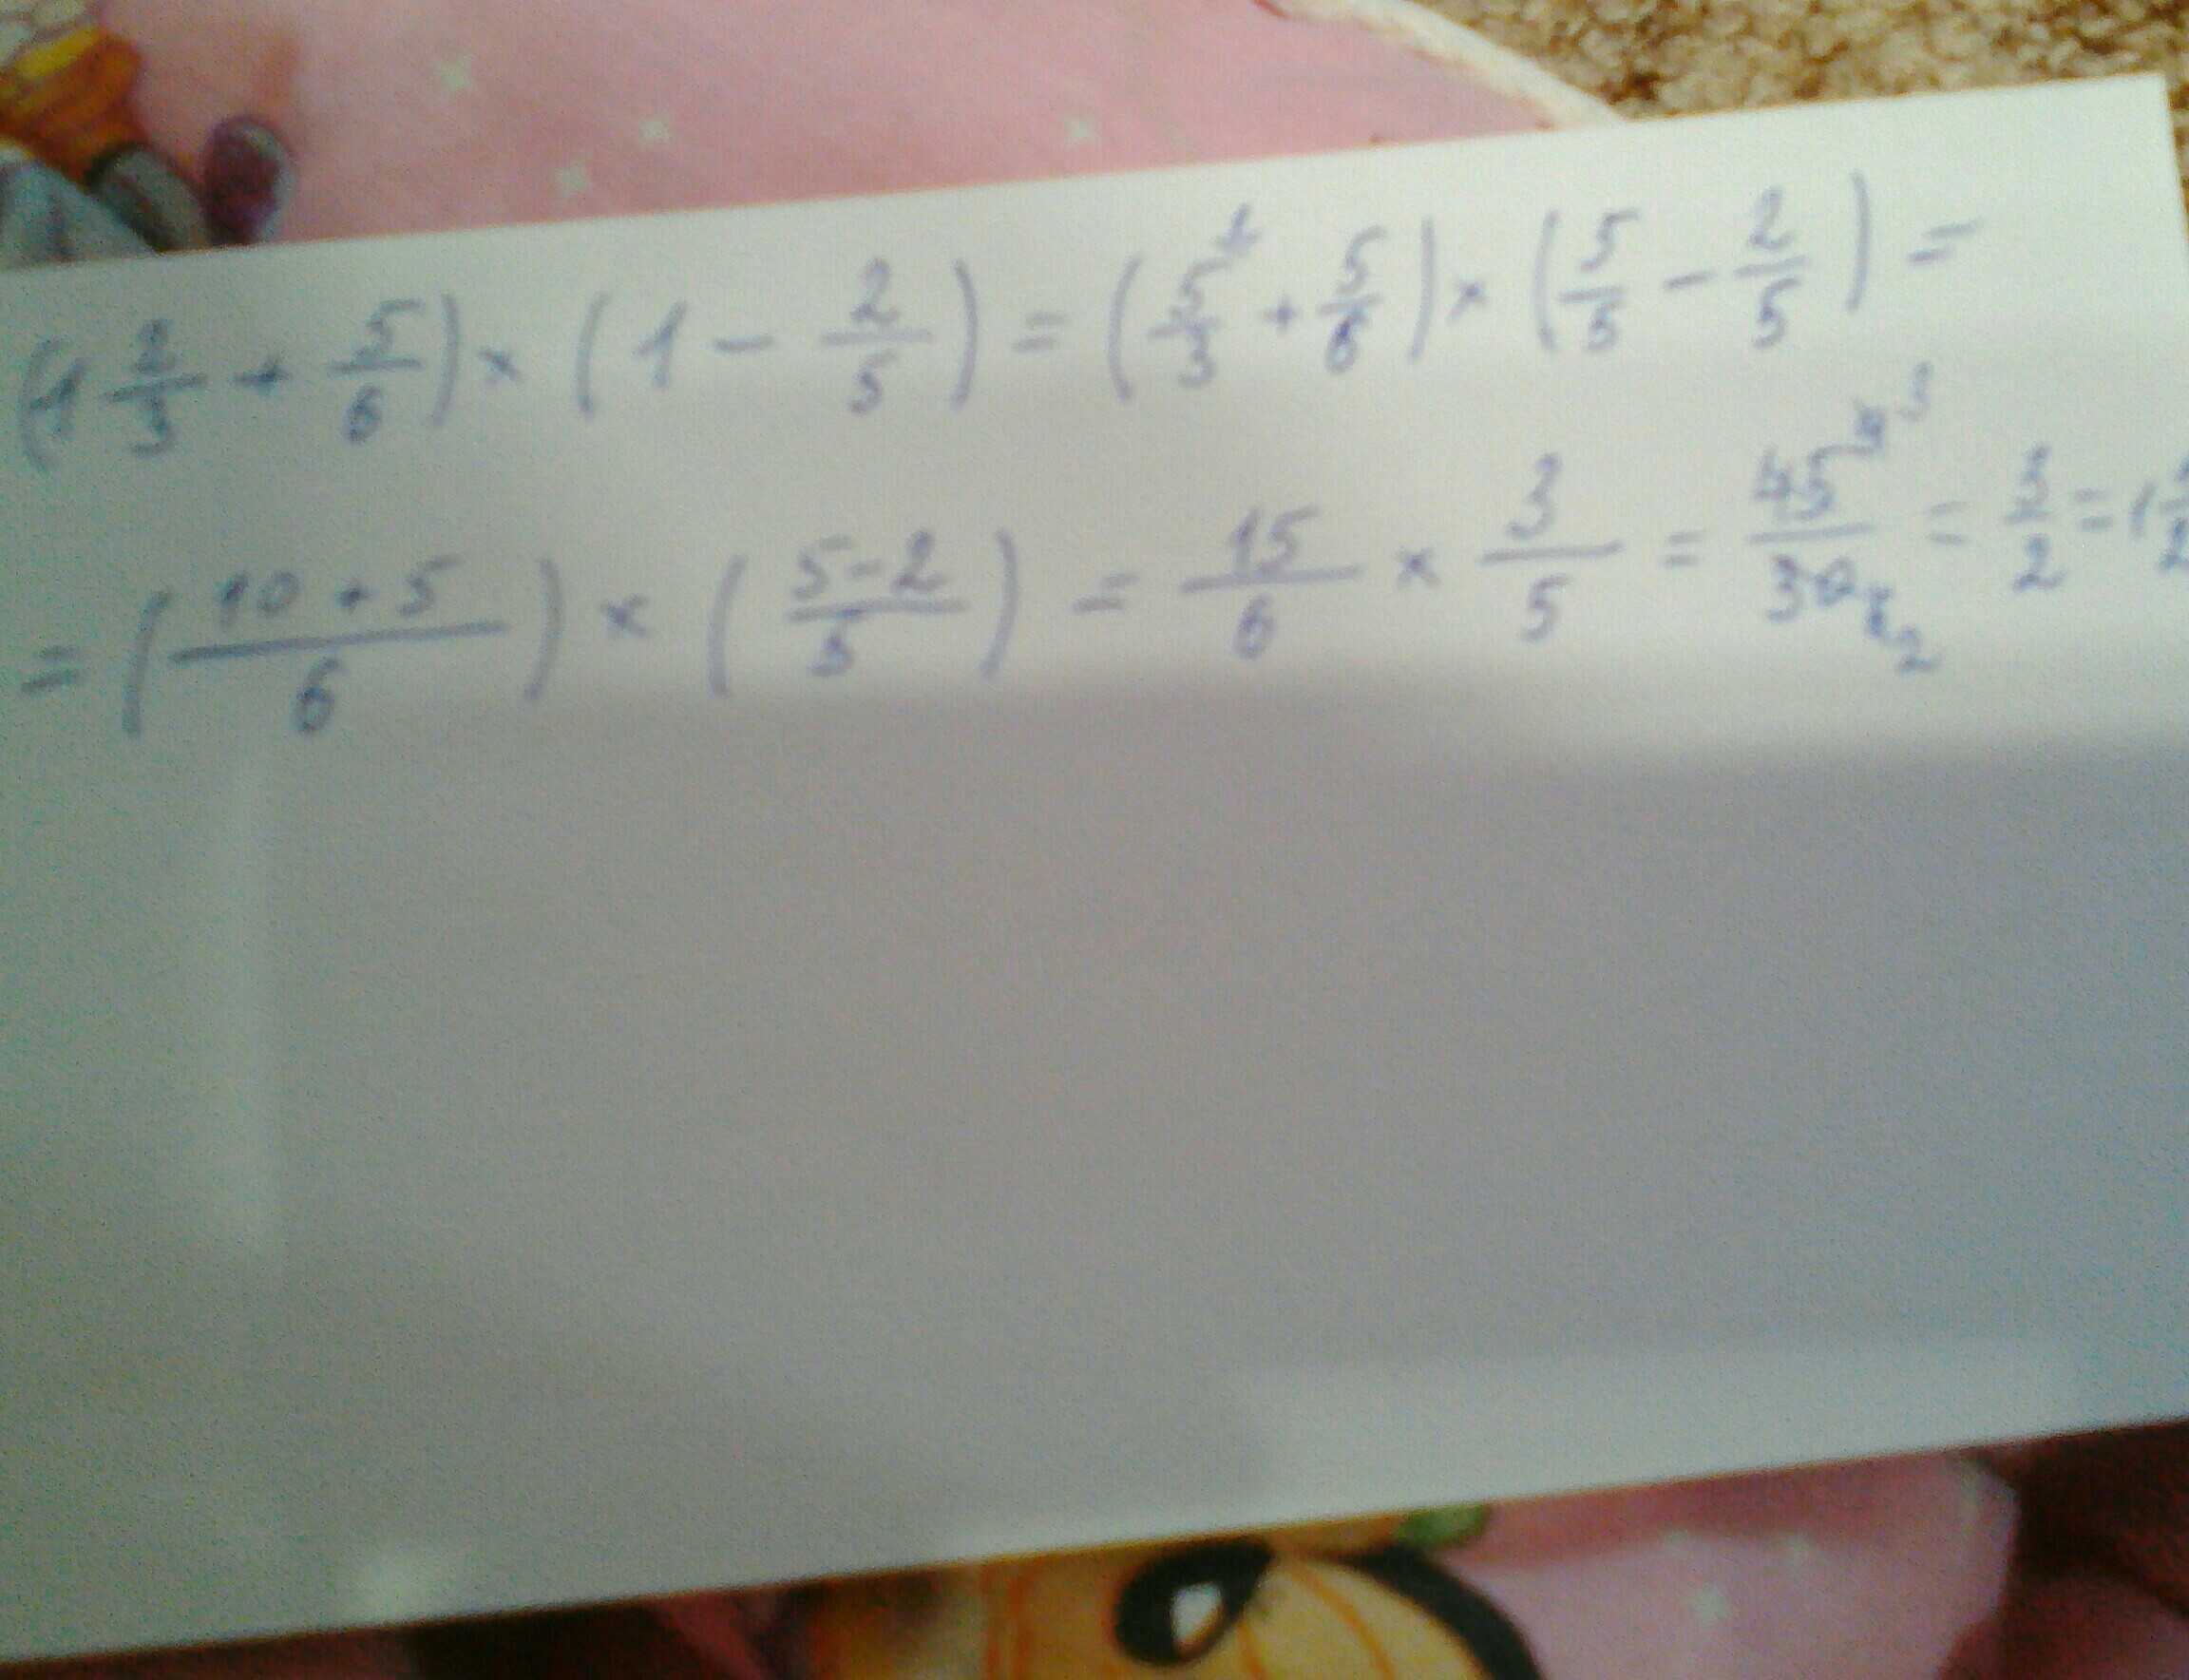 (1 2/3 + 5/6) × (1 - 2/5) = (5/3 + 5/6) × (5/5 - 2/5) =
= (10 + 5/6) × (5-2/5) = 15/6 × 3/5 = 45/30 = 3/2 = 1